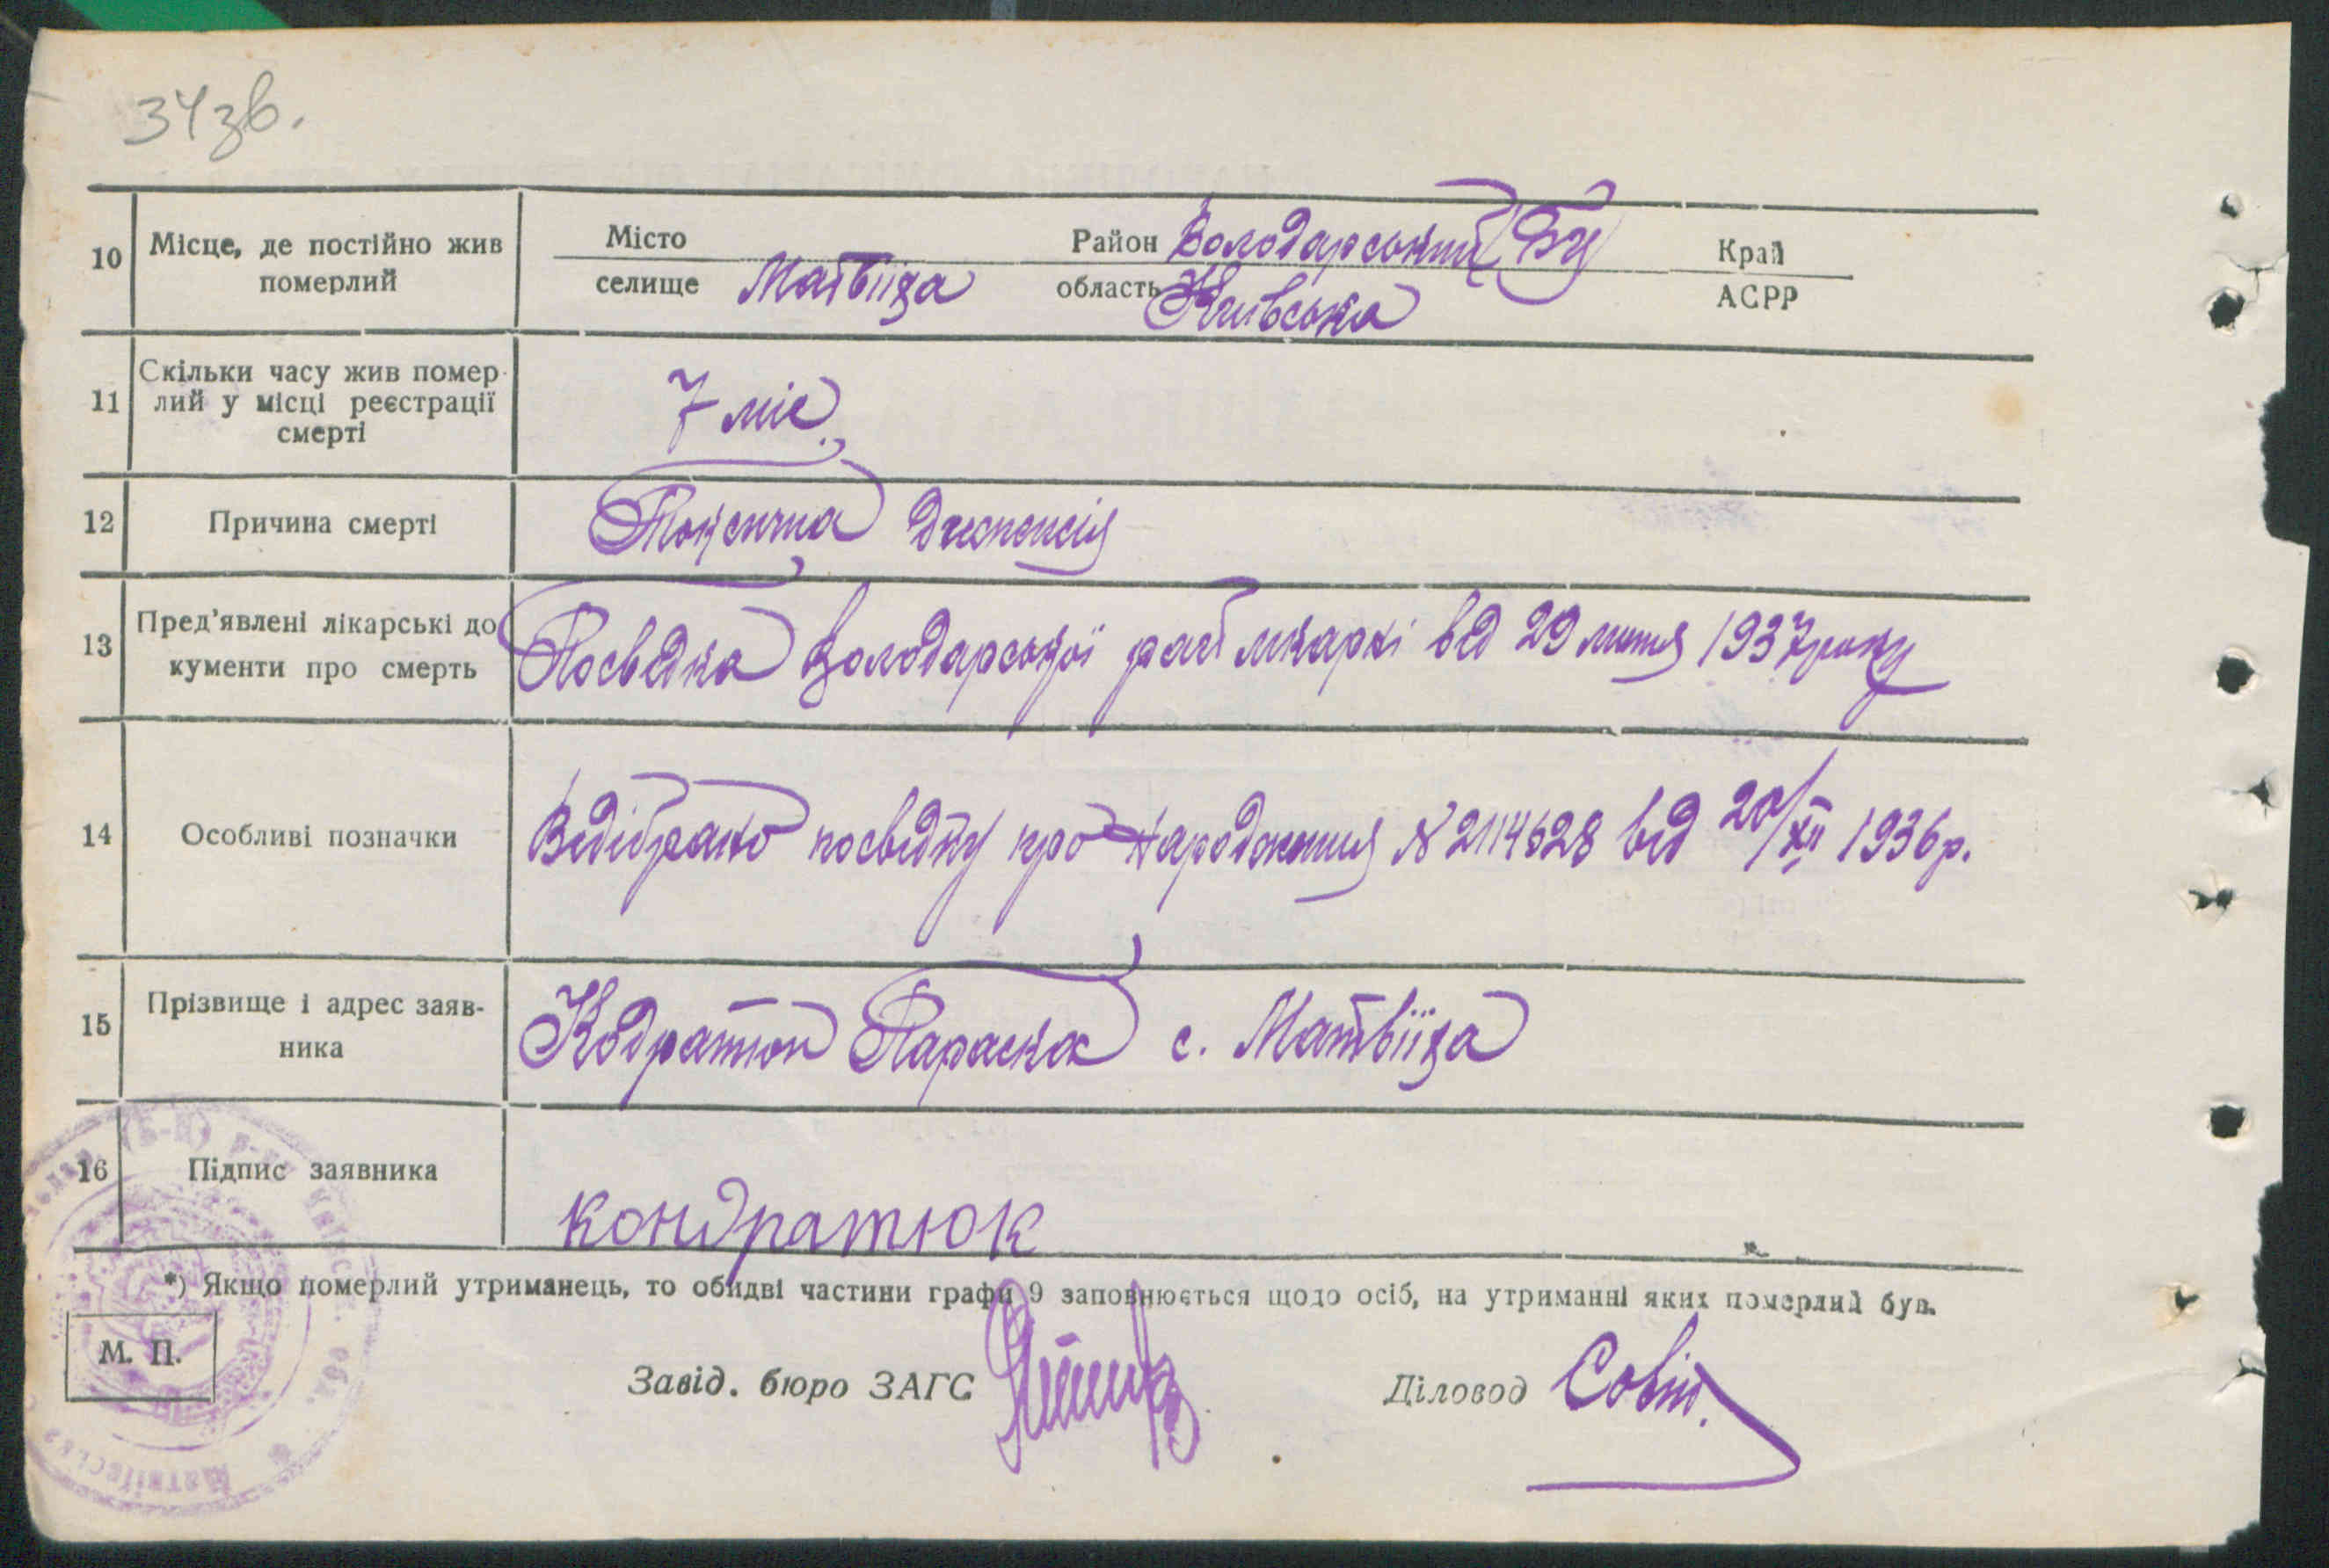 34зв.
10 Місце, де постійно жив померлий
Місто
селище Матвіїха
Район Володарський (БЦ)
область Київська
Край
АСРР
11 Скільки часу жив помер-
лий у місці реєстрації
смерті
7 міс.
12 Причина смерті
Токсична диспепсія
13 Пред’явлені лікарські до
кументи про смерть
Посвідка Володарської рай лікарні від 29 лютня 1937 року
14 Особливі позначки
Відібрано посвідку про народження N 2114628 від 20/XII 1936 р.
15 Прізвище і адрес заяв-
ника
Кодратюк Параска с. Матвіїха
16 Підпис заявника
Кондратюк
*) Якщо померлий утриманець, то обидві частини графи 9 заповнюється щодо осіб, на утриманні яких померлий був.
М. П.
Завід. бюро ЗАГС
Діловод